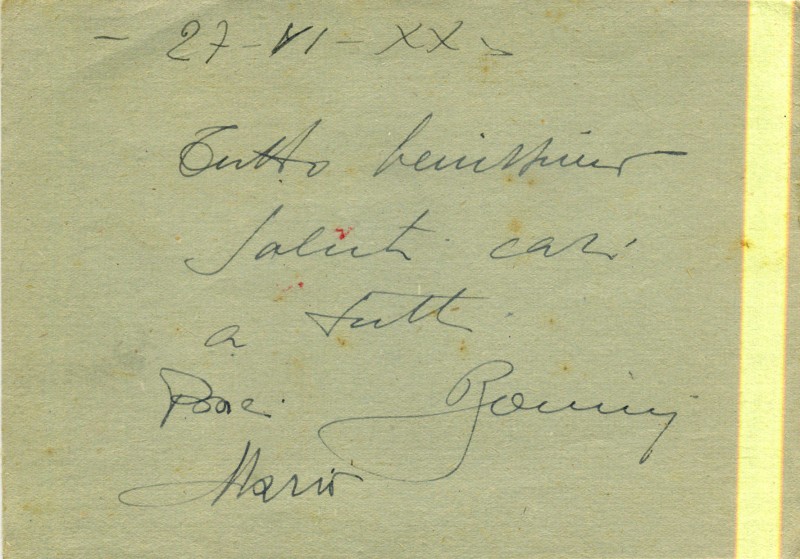 - 27-VI-XX
Tutto benissimo
Saluti cari
a tutti
Mario